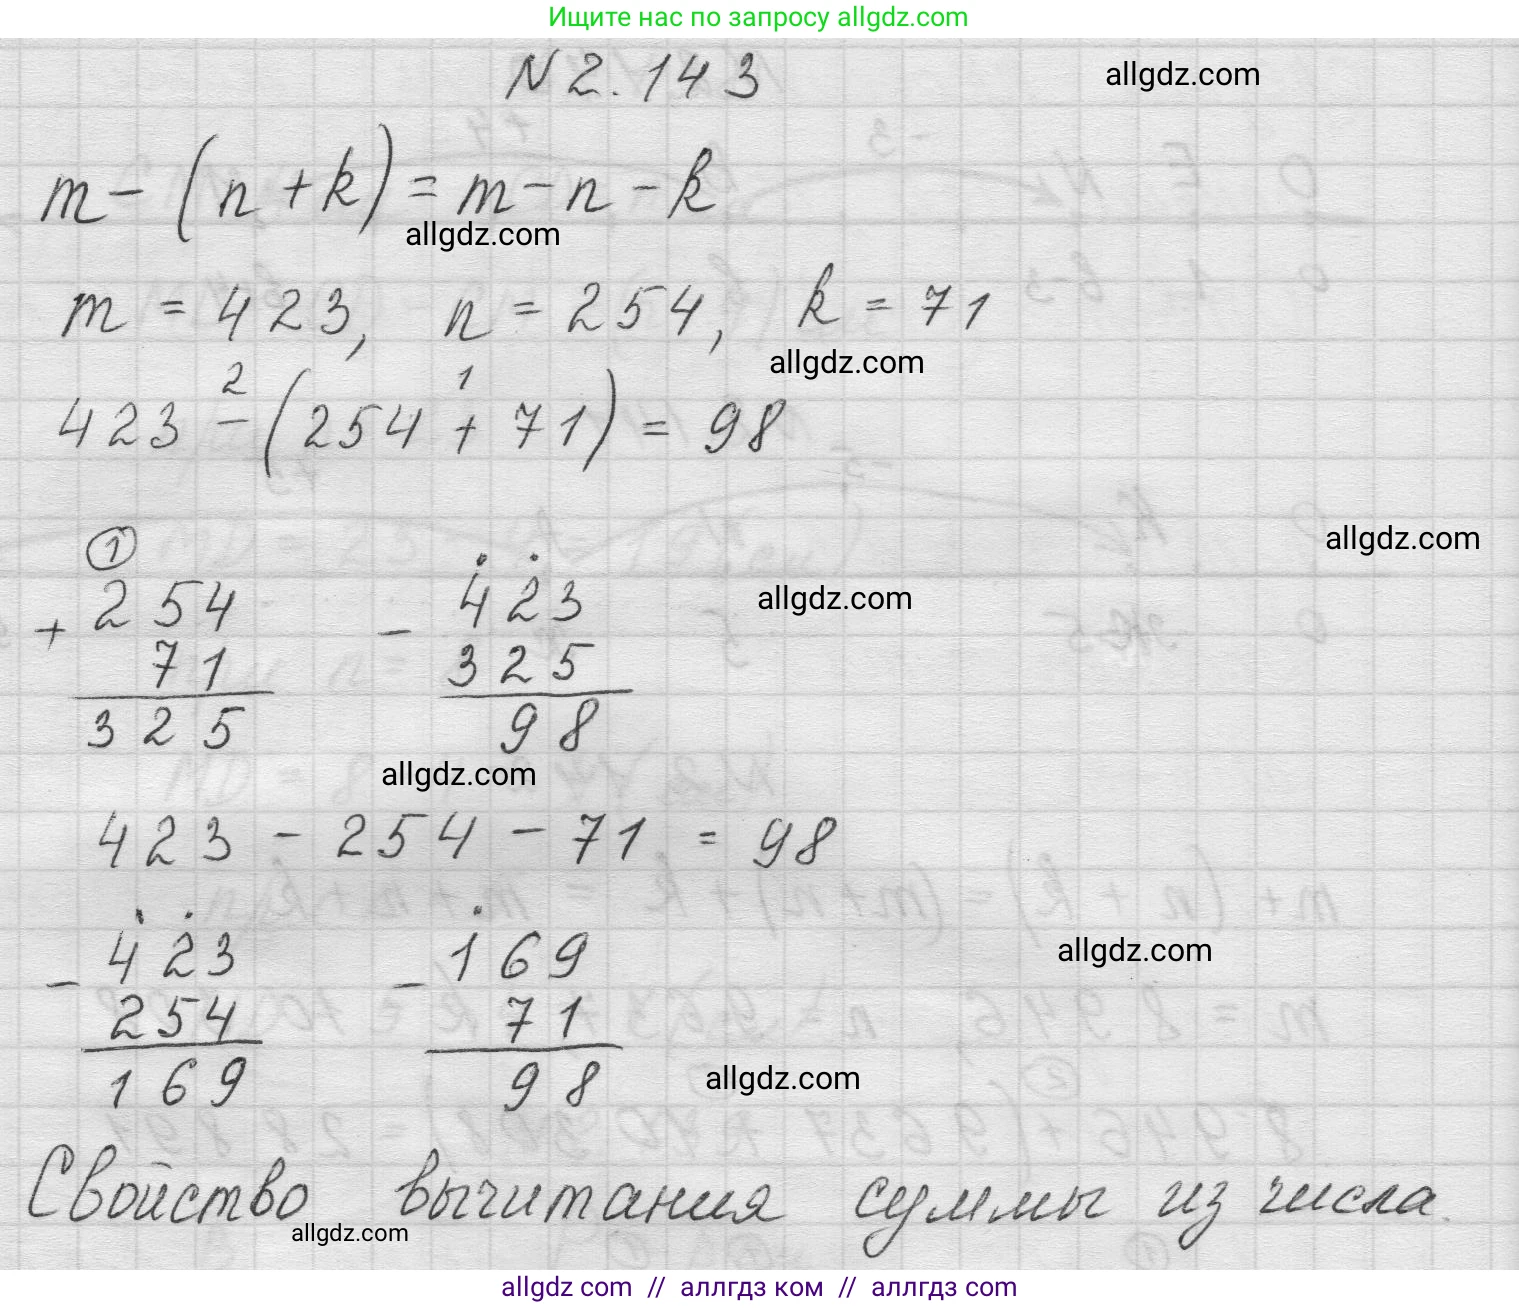 Ищите нас по запросу allgdz.com
N 2.143
allgdz.com
m - (n + k) = m - n - k
allgdz.com
m = 423, n = 254, k = 71
allgdz.com
2 1
423 - (254 + 71) = 98
allgdz.com
1
254
+
71
325
423
-
325
98
allgdz.com
allgdz.com
423 - 254 - 71 = 98
423
-
254
169
169
-
71
98
allgdz.com
allgdz.com
Свойство вычитания суммы из числа.
allgdz.com
allgdz.com // аллгдз ком // аллгдз com